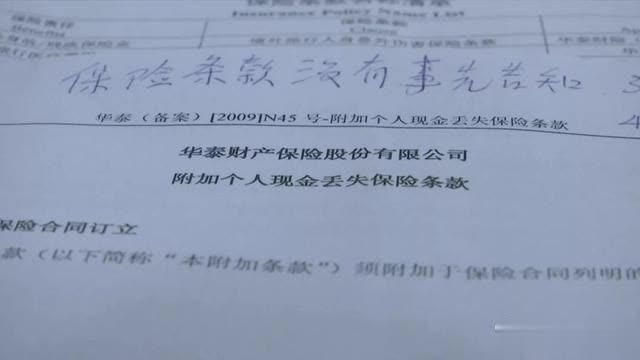 保险条款名称清单
Insurance Policy Name List
保险责任
Benefits
保险条款
Clause
境外旅行人身意外伤害保险条款
华泰财险
保险条款没有事先告知
华泰（备案）[2009]N45 号-附加个人现金丢失保险条款
华泰财产保险股份有限公司
附加个人现金丢失保险条款
保险合同订立
款（以下简称“本附加条款”）须附加于保险合同列明的